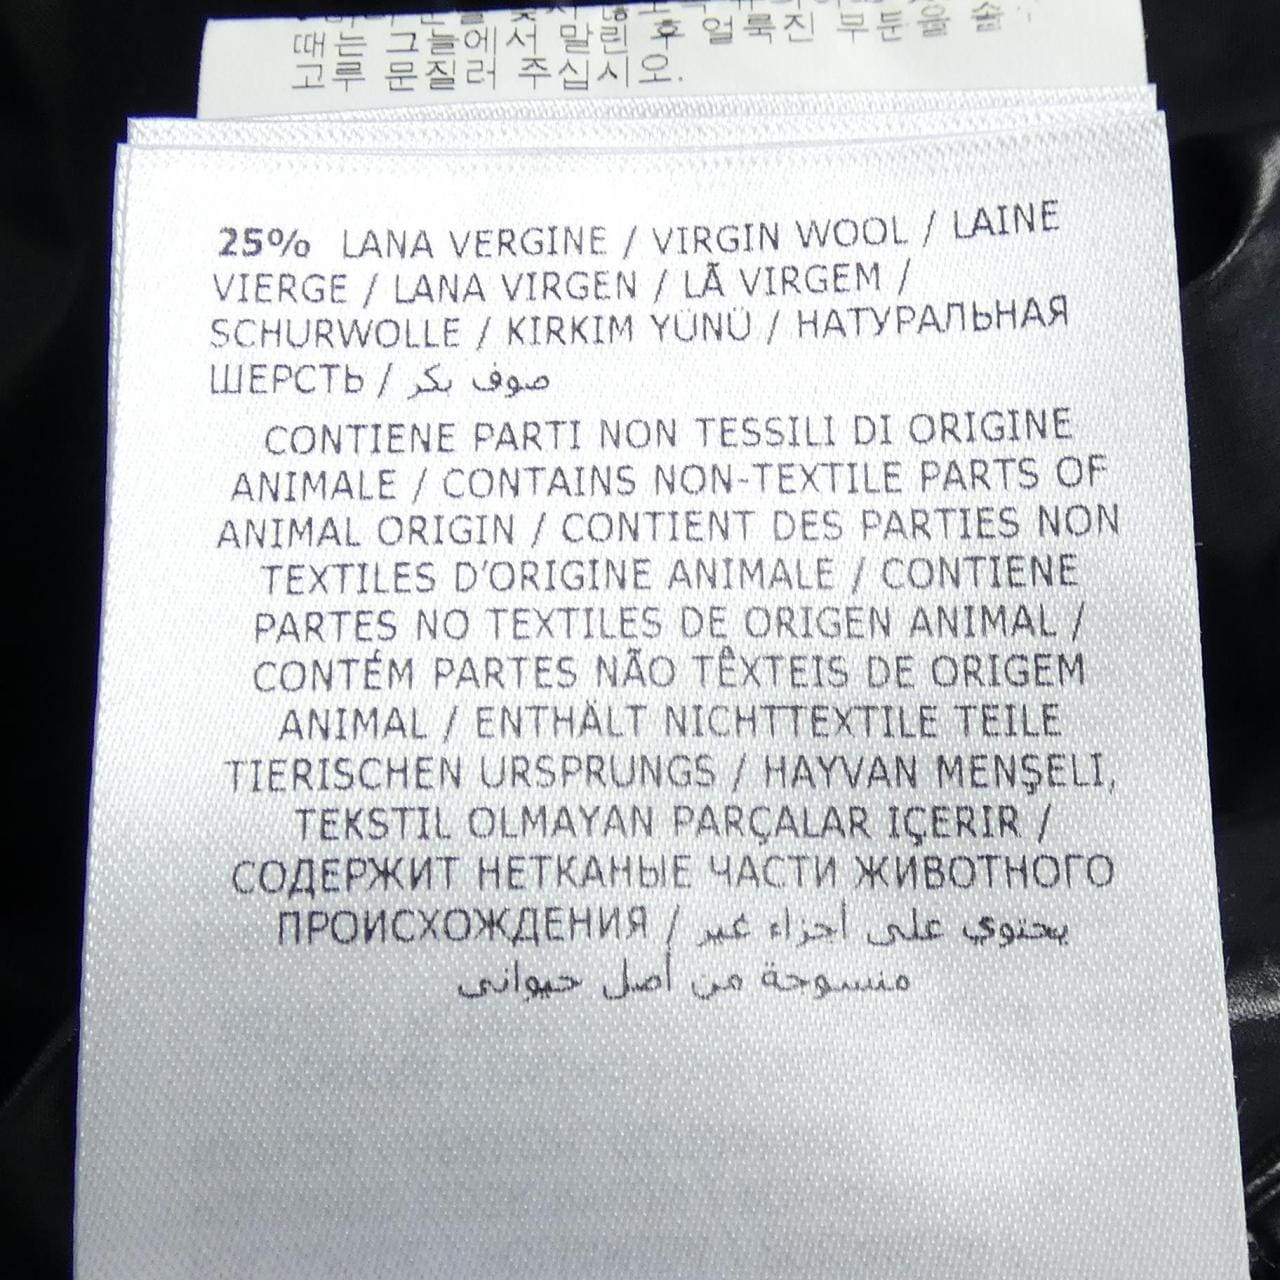 때는 그늘에서 말린 후 얼룩진 부분을 솔
고루 문질러 주십시오.
25% LANA VERGINE / VIRGIN WOOL / LAINE
VIERGE / LANA VIRGEN / LÃ VIRGEM /
SCHURWOLLE / KIRKIM YÜNÜ / НАТУРАЛЬНАЯ
ШЕРСТЬ / صوف بكر
CONTIENE PARTI NON TESSILI DI ORIGINE
ANIMALE / CONTAINS NON-TEXTILE PARTS OF
ANIMAL ORIGIN / CONTIENT DES PARTIES NON
TEXTILES D'ORIGINE ANIMALE / CONTIENE
PARTES NO TEXTILES DE ORIGEN ANIMAL /
CONTÉM PARTES NÃO TÊXTEIS DE ORIGEM
ANIMAL / ENTHÄLT NICHTTEXTILE TEILE
TIERISCHEN URSPRUNGS / HAYVAN MENŞELI,
TEKSTIL OLMAYAN PARÇALAR IÇERIR /
СОДЕРЖИТ НЕТКАНЫЕ ЧАСТИ ЖИВОТНОГО
ПРОИСХОЖДЕНИЯ / يحتوي على أجزاء غير
منسوجة من أصل حيواني